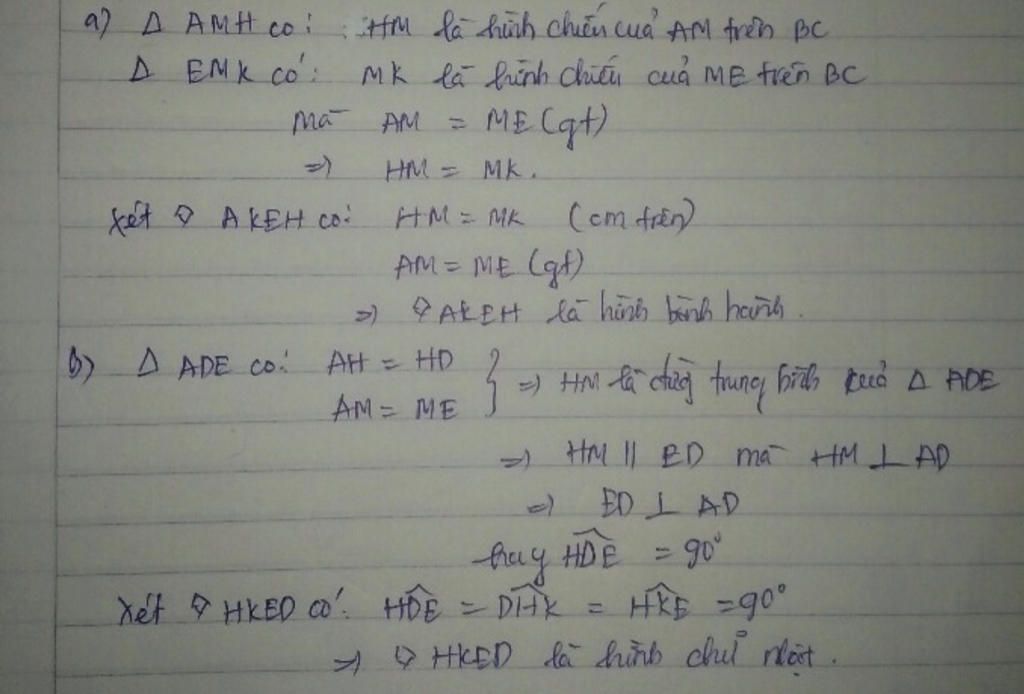 a) Δ AMH có: HM là hình chiếu của AM trên BC
Δ EMK có: MK là hình chiếu của ME trên BC
mà AM = ME (gt)
=> HM = MK.
Xét ◊ AKEH có: HM = MK (cm trên)
AM = ME (gt)
=> ◊ AKEH là hình bình hành.
b) Δ ADE có: AH = HD
AM = ME } => HM là đường trung bình của Δ ADE
=> HM || ED mà HM ⊥ AD
=> ED ⊥ AD
hay \widehat{HDE} = 90°
Xét ◊ HKED có: \widehat{HDE} = \widehat{DHK} = \widehat{HKE} = 90°
=> ◊ HKED là hình chữ nhật.